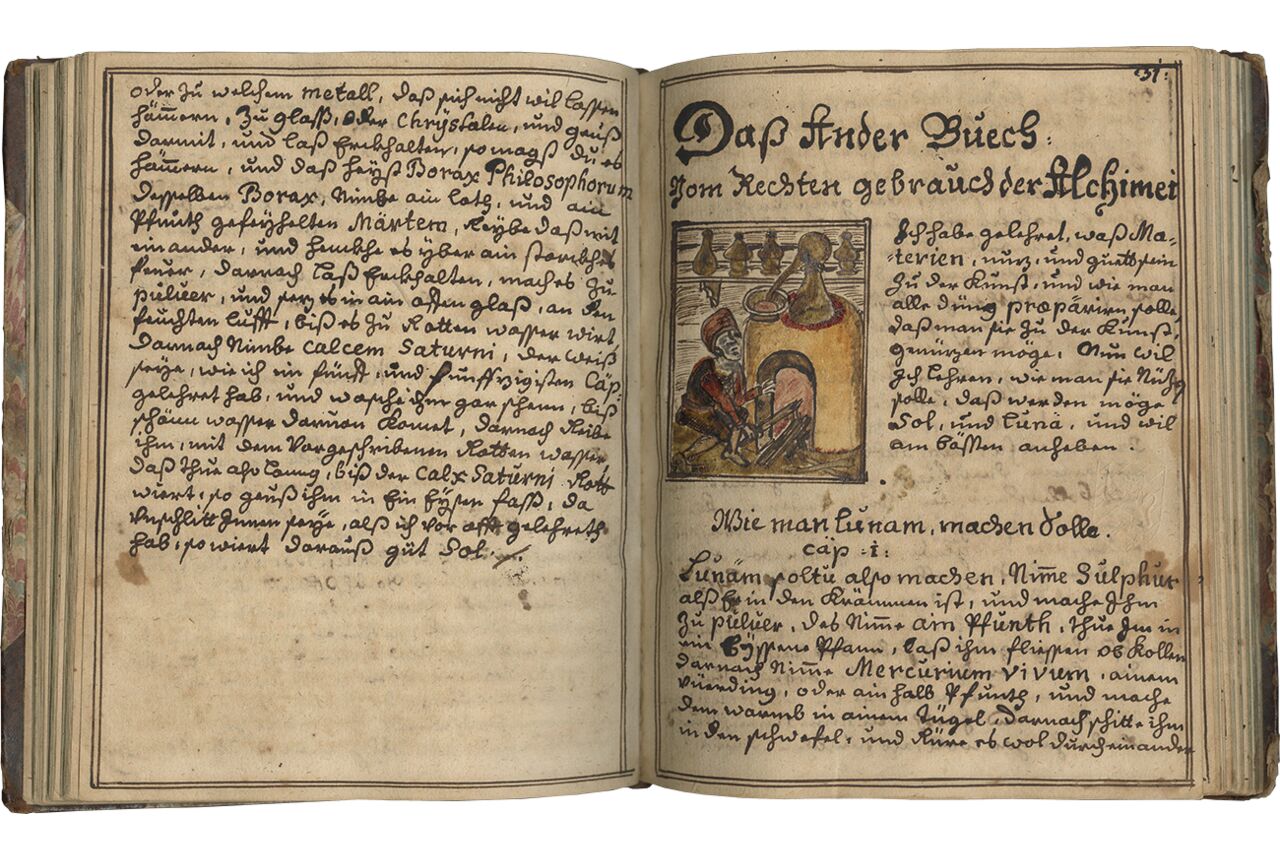 oder zu welchem metall, daß sich nicht wil lassen
hämmern, zu glaß, oder Chrÿstalen, und geuß
darmit, und laß Erckhalten, so magst du es
hämmern, und daß heÿst Borax Philosophorum
desselben Borax, Nimbe ain loth, und ain
Pfunth gefeÿhelten Märtem, Reÿbe daß mit
einander, und henckhe es yber ain starckhes
feuer, darnach laß Erckhalten, mach es zu
puluer, und sez es in ain offen glaß, an den
feuchten lufft, biß es zu Rotten wasser wirt,
darnach Nimbe calcem Saturni, der weiß
seÿe, wie ich im fünff, und funffzigisten Cäp:
gelehret hab, und wasche ihm gar schenn, biß
schänn wasser daruon Komet, darnach Reibe
ihm, mit dem Vorgeschribenen Rotten wasser
daß thue also lanng, biß der calx Saturni Rott
wiert, so geuß ihm in Ein Eÿsen faß, da
Vnschlitt Innen seÿe, alß ich vor offt gelehreth
hab, so wiert darauß güt Sol.
51:
Daß Ander Buech:
Vom Rechten gebrauch der Alchimei
Ich habe gelehret, waß Ma-
terien, nuz, und guetb sein
zu der Kunst, und wie man
alle düng præparirn solle,
daß man sie zu der Kunst,
genürzen möge, Nun wil
Ich lehren, wie man sie Nüzn
solle, daß werden möge
Sol, und Luna, und wil
am bässen anheben.
Wie man lunam, machen Solle.
cäp :1:
Lunäm soltu also machen, Nim̄e Sulphur
alß Er in den Krämmen ist, und mache Ihm
zu puluer, des Nim̄e ain Pfunth, thue Im in
ein Eÿssene Pfann, laß ihm fliessen ob Kollen
darnach Nim̄e Mercurium vivum, ainem
vüerding, oder ain halb Pfunth, und mache
dem warmb in ainem Tügel, darnach schitte ihm
in den schwefel, und Rüre es wol durch einander